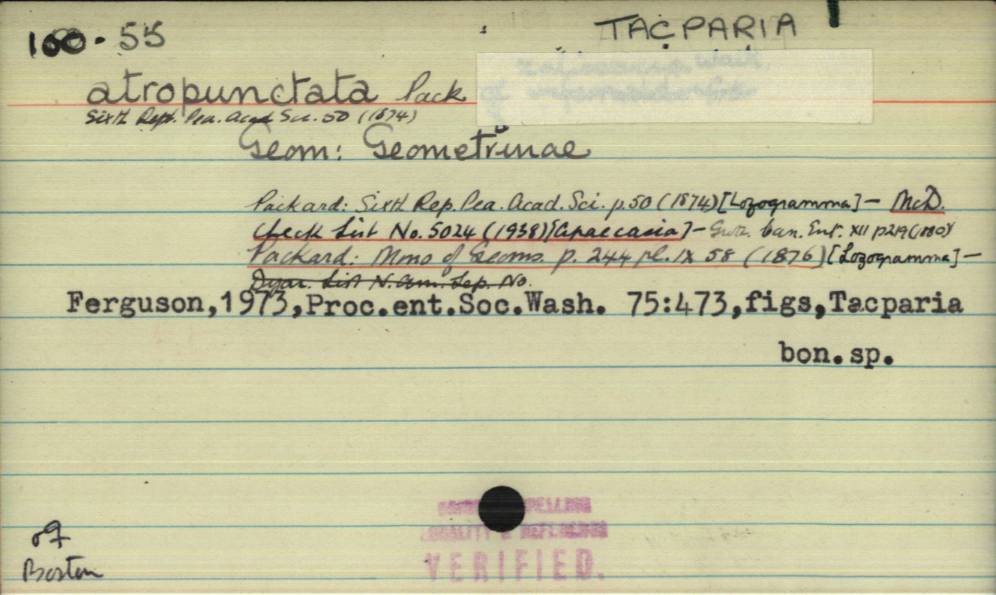 160.55
TACPARIA
atropunctata Pack
Sixth Rept. Pea. Acad Sci. 50 (1874)
Geom: Geometrinae
Packard: Sixth Rep. Pea. Acad. Sci. p.50 (1874) [Lozogramma] – McD.
Check List No. 5024 (1938) [Apaecasia] – Can. Ent. XII p219 (1880)
Packard: Mono of Geoms. p. 244 pl. IX 58 (1876) [Lozogramma] –
Dyar. List N. Am. Lep. No.
Ferguson,1973,Proc.ent.Soc.Wash. 75:473,figs,Tacparia
bon.sp.
♂♀
Boston
SPELLING
LOCALITY & REFERENCE
VERIFIED.